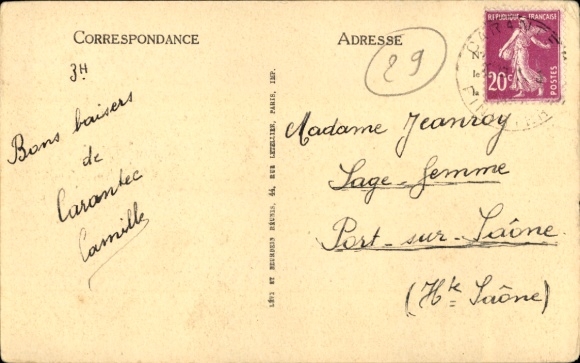 CORRESPONDANCE
3H
Bons baisers
de
Carantec
Camille
LÉVY ET NEURDEIN RÉUNIS, 44, RUE LETELLIER, PARIS, IMP.
ADRESSE
29
REPUBLIQUE FRANÇAISE
20c
POSTES
Madame Jeanroy
Sage-femme
Port-sur-Saône
(Hte Saône)